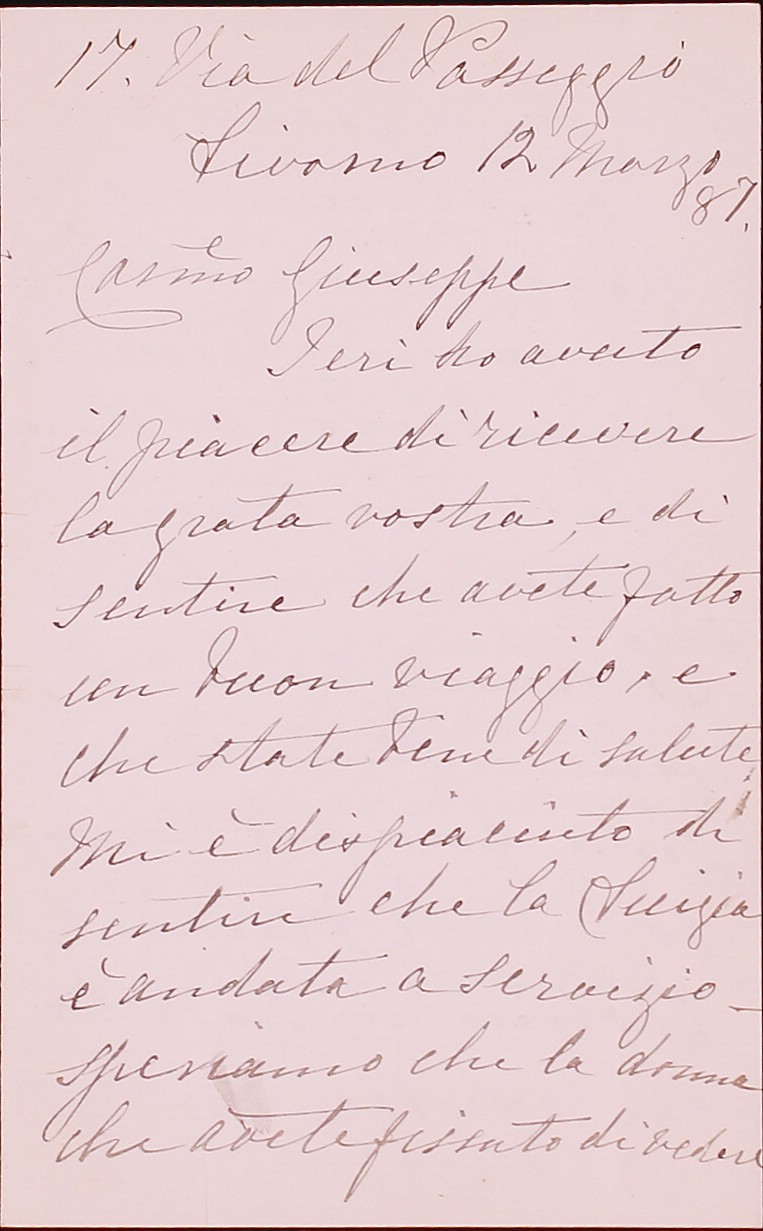 17. Via del Passeggio
Livorno 12 Marzo
87.
Carmo Giuseppe
Ieri ho avuto
il piacere di ricevere
la grata vostra, e di
sentire che avete fatto
un buon viaggio, e
che state bene di salute.
Mi è dispiaciuto di
sentire che la Luigia
è andata a servizio -
speriamo che la donna
che avete fissato di vedere